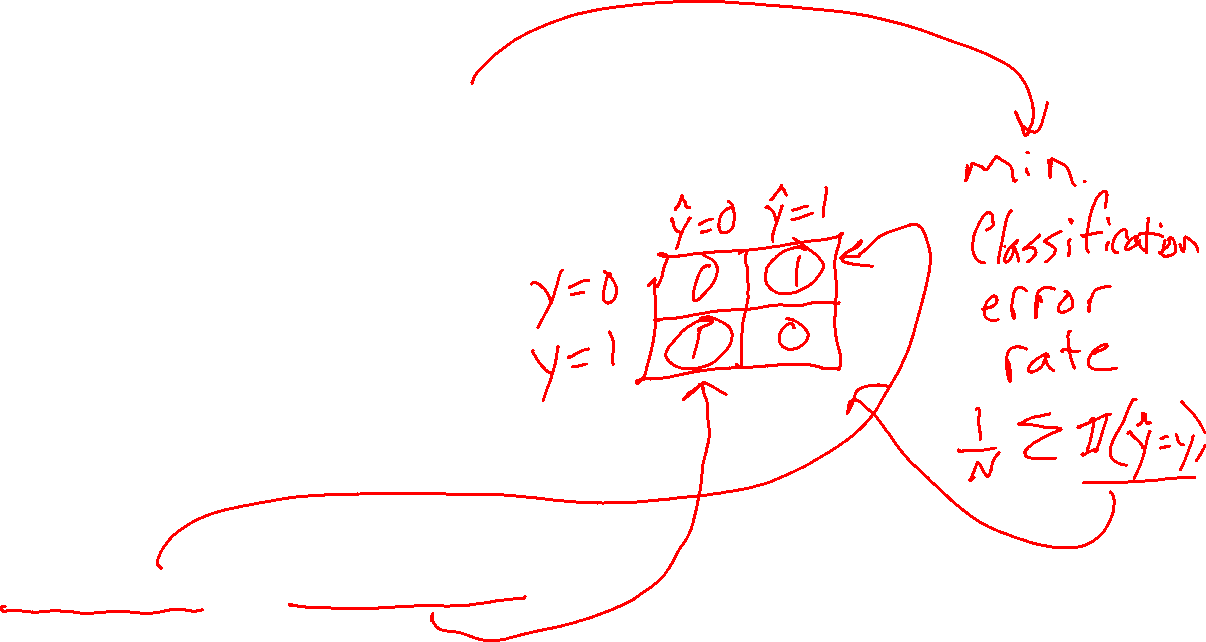 min.
Classification
error
rate
1/N Σ 𝕀(ŷ=y)
ŷ=0 ŷ=1
y=0 0 1
y=1 1 0